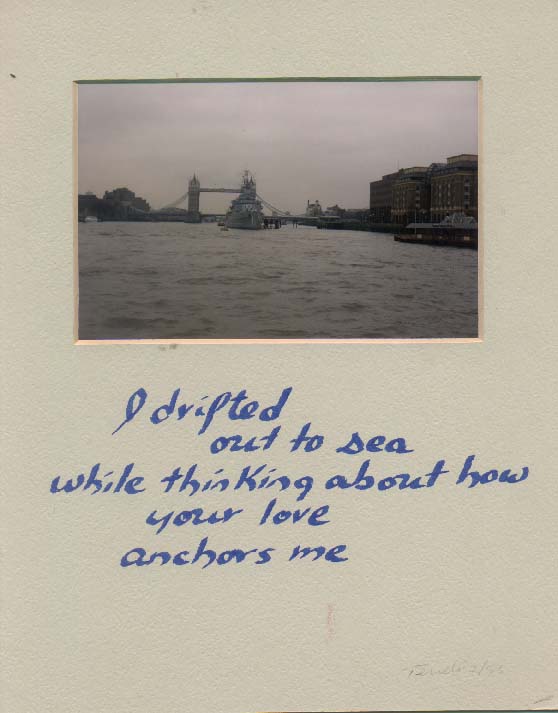 I drifted
out to sea
while thinking about how
your love
anchors me